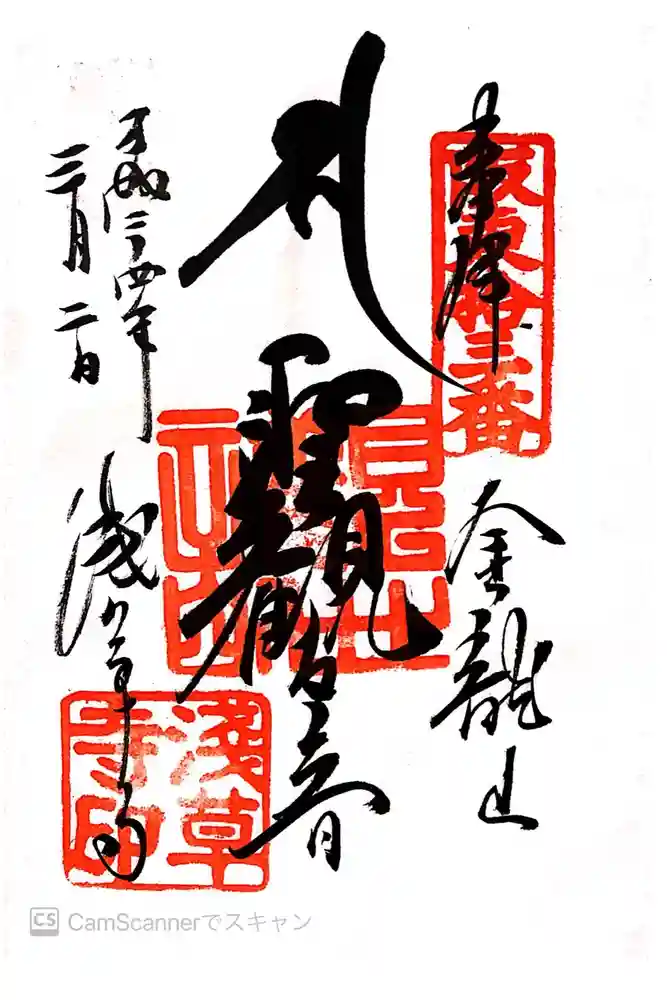 奉拝
坂東拾三番
金龍山
聖観世音
平成二十四年
三月二日
浅草寺
淺草寺印
CS CamScannerでスキャン